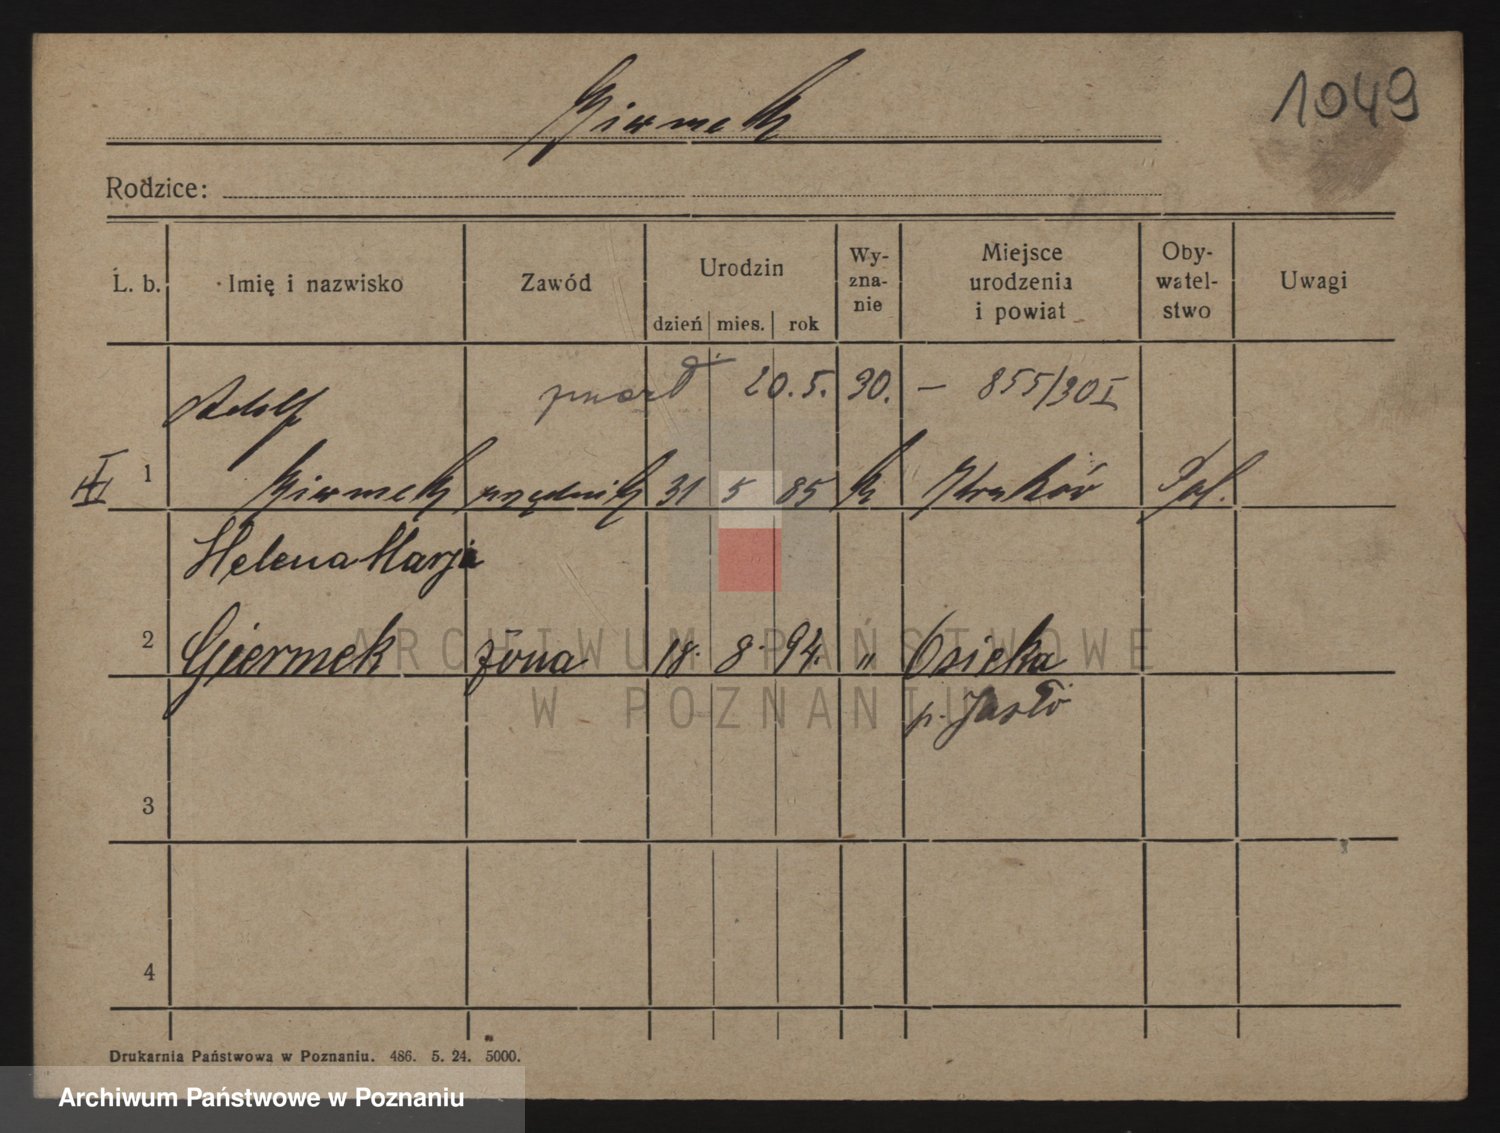 Giermek
1049
Rodzice:
L. b.
Imię i nazwisko
Zawód
Urodzin
dzień mies. rok
Wy-
zna-
nie
Miejsce
urodzenia
i powiat
Oby-
watel-
stwo
Uwagi
Adolf
zmarł 20. 5. 30. — 855/30 I
1 Giermek urzędnik 31 5 85 k Kraków Pol.
Helena Marja
2 Giermek żona 18. 8. 94. " Osieka
p. Jasło
3
4
ARCHIWUM PAŃSTWOWE
W POZNANIU
Drukarnia Państwowa w Poznaniu. 486. 5. 24. 5000.
Archiwum Państwowe w Poznaniu